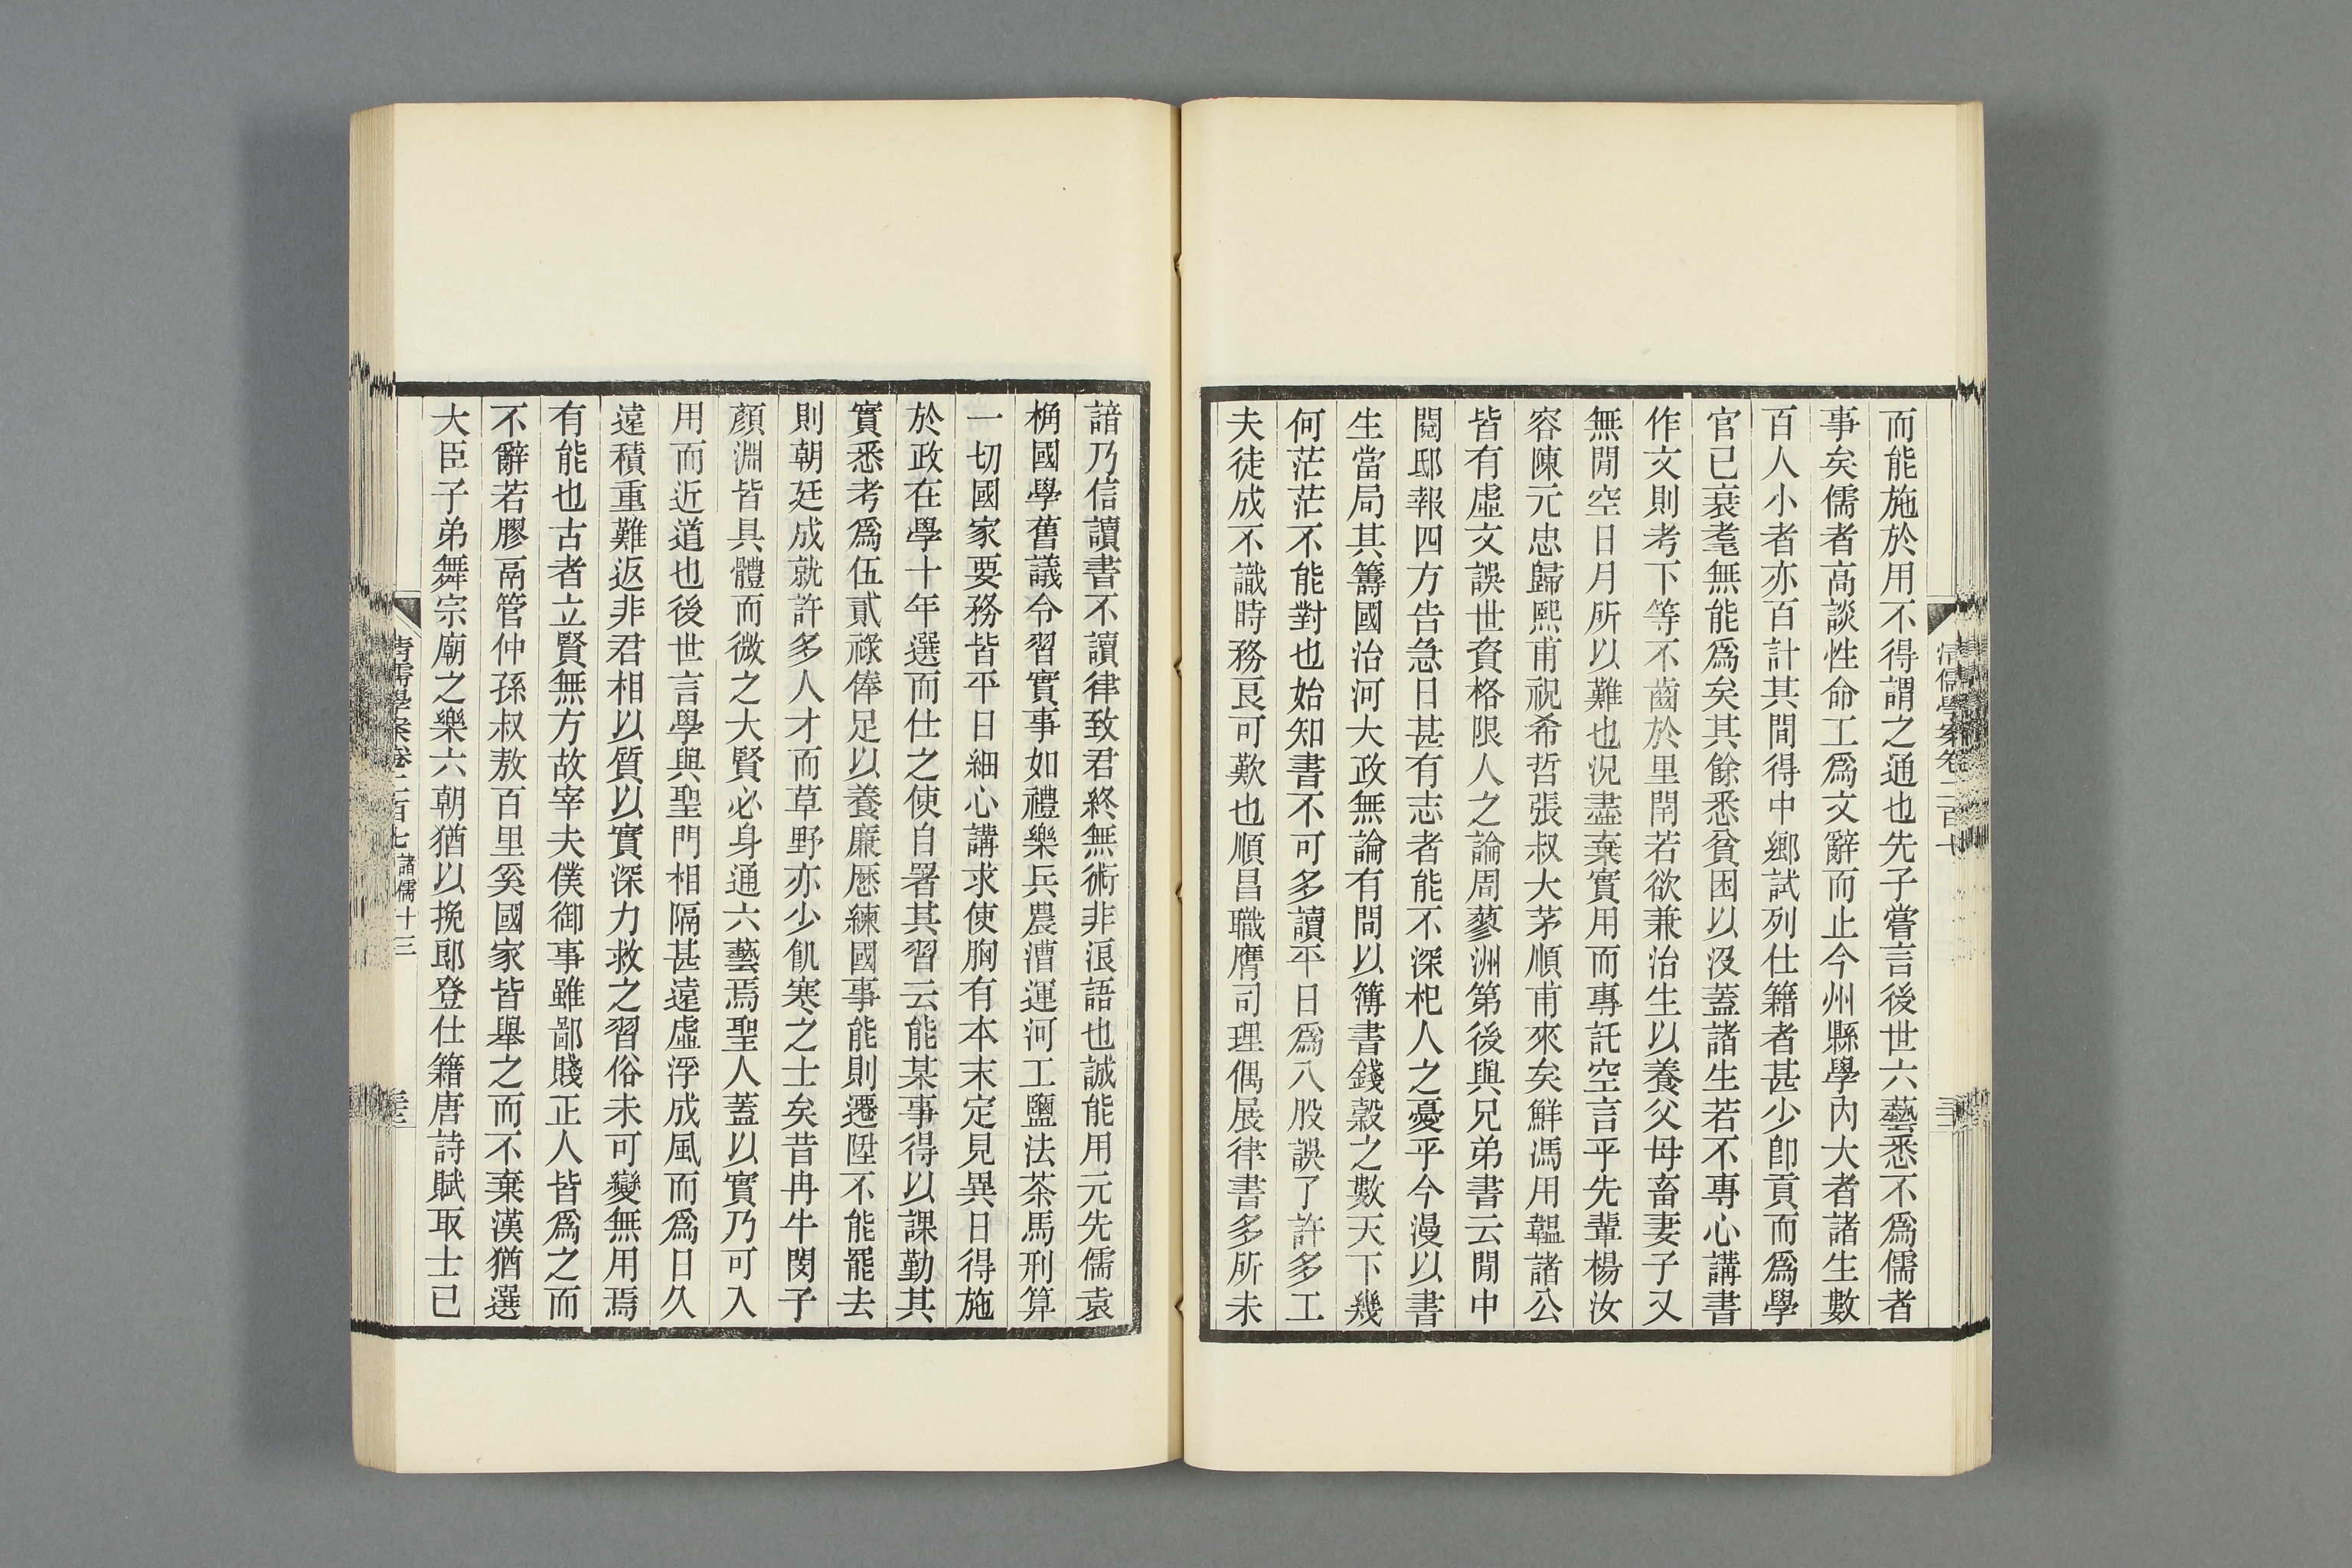 而能施於用不得謂之通也先子嘗言後世六藝悉不爲儒者
事矣儒者高談性命工爲文辭而止今州縣學內大者諸生數
百人小者亦百計其間得中鄉試列仕籍者甚少卽貢而爲學
官已衰耄無能爲矣其餘悉貧困以沒蓋諸生若不專心講書
作文則考下等不齒於里閈若欲兼治生以養父母畜妻子又
無閒空日月所以難也況盡棄實用而專託空言乎先輩楊汝
容陳元忠歸熙甫祝希哲張叔大茅順甫來矣鮮馮用韞諸公
皆有虛文誤世資格限人之論周蓼洲第後與兄弟書云閒中
閱邸報四方告急日甚有志者能不深杞人之憂乎今漫以書
生當局其籌國治河大政無論有問以簿書錢穀之數天下幾
何茫茫不能對也始知書不可多讀平日爲八股誤了許多工
夫徒成不識時務良可歎也順昌職膺司理偶展律書多所未
諳乃信讀書不讀律致君終無術非浪語也誠能用元先儒袁
桷國學舊議令習實事如禮樂兵農漕運河工鹽法茶馬刑算
一切國家要務皆平日細心講求使胸有本末定見異日得施
於政在學十年選而仕之使自署其習云能某事得以課勤其
實悉考爲伍貳祿俸足以養廉歷練國事能則遷陞不能罷去
則朝廷成就許多人才而草野亦少飢寒之士矣昔冉牛閔子
顏淵皆具體而微之大賢必身通六藝焉聖人蓋以實乃可入
用而近道也後世言學與聖門相隔甚遠虛浮成風而爲日久
遠積重難返非君相以質以實深力救之習俗未可變無用焉
有能也古者立賢無方故宰夫僕御事雖鄙賤正人皆爲之而
不辭若膠鬲管仲孫叔敖百里奚國家皆舉之而不棄漢猶選
大臣子弟舞宗廟之樂六朝猶以挽郎登仕籍唐詩賦取士已
清儒學案卷二百七 諸儒十三